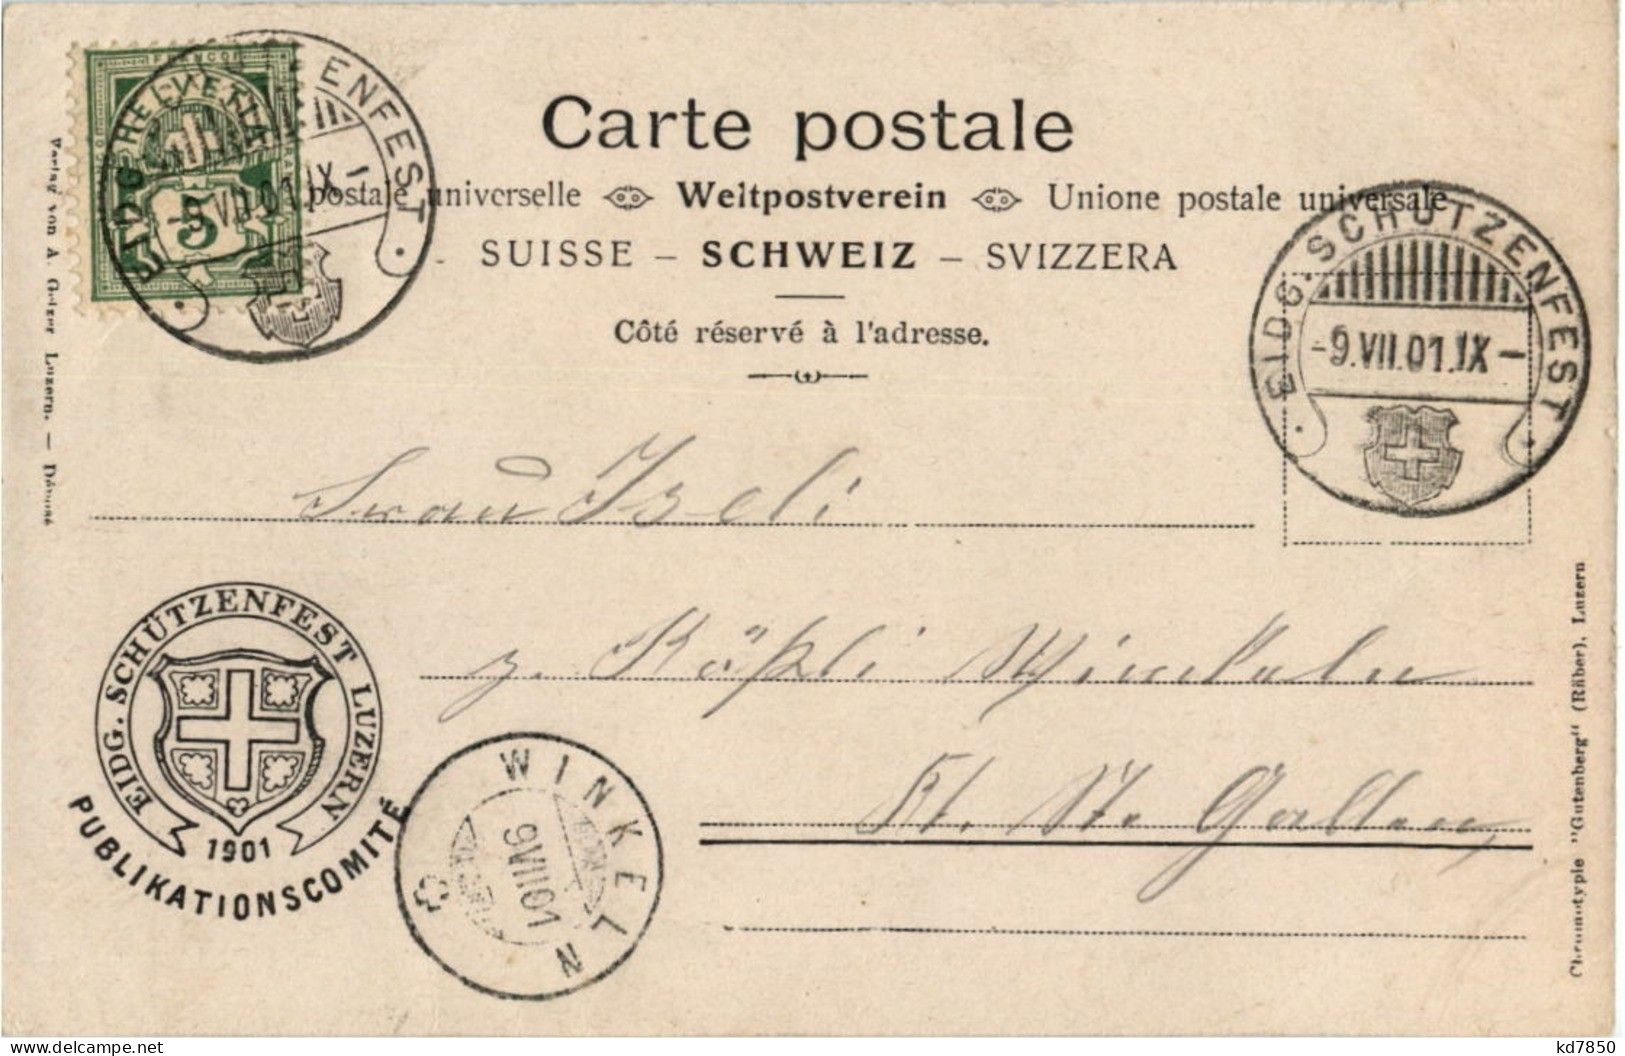 Carte postale
postale universelle Weltpostverein Unione postale universale
SUISSE – SCHWEIZ – SVIZZERA
Côté réservé à l'adresse.
FRANCO
HELVETIA
5
EIDG. SCHÜTZENFEST
-9.VII.01.IX-
EIDG. SCHÜTZENFEST
-9.VII.01.IX-
Verlag von A. Gelzer Luzern. — Déposé
Frau Iseli
z. Rößli Winkeln
Kt. St. Gallen
EIDG. SCHÜTZENFEST LUZERN
1901
PUBLIKATIONSCOMITÉ
WINKELN
9VII01
Chromotypie "Gutenberg" (Räber), Luzern
kd7850